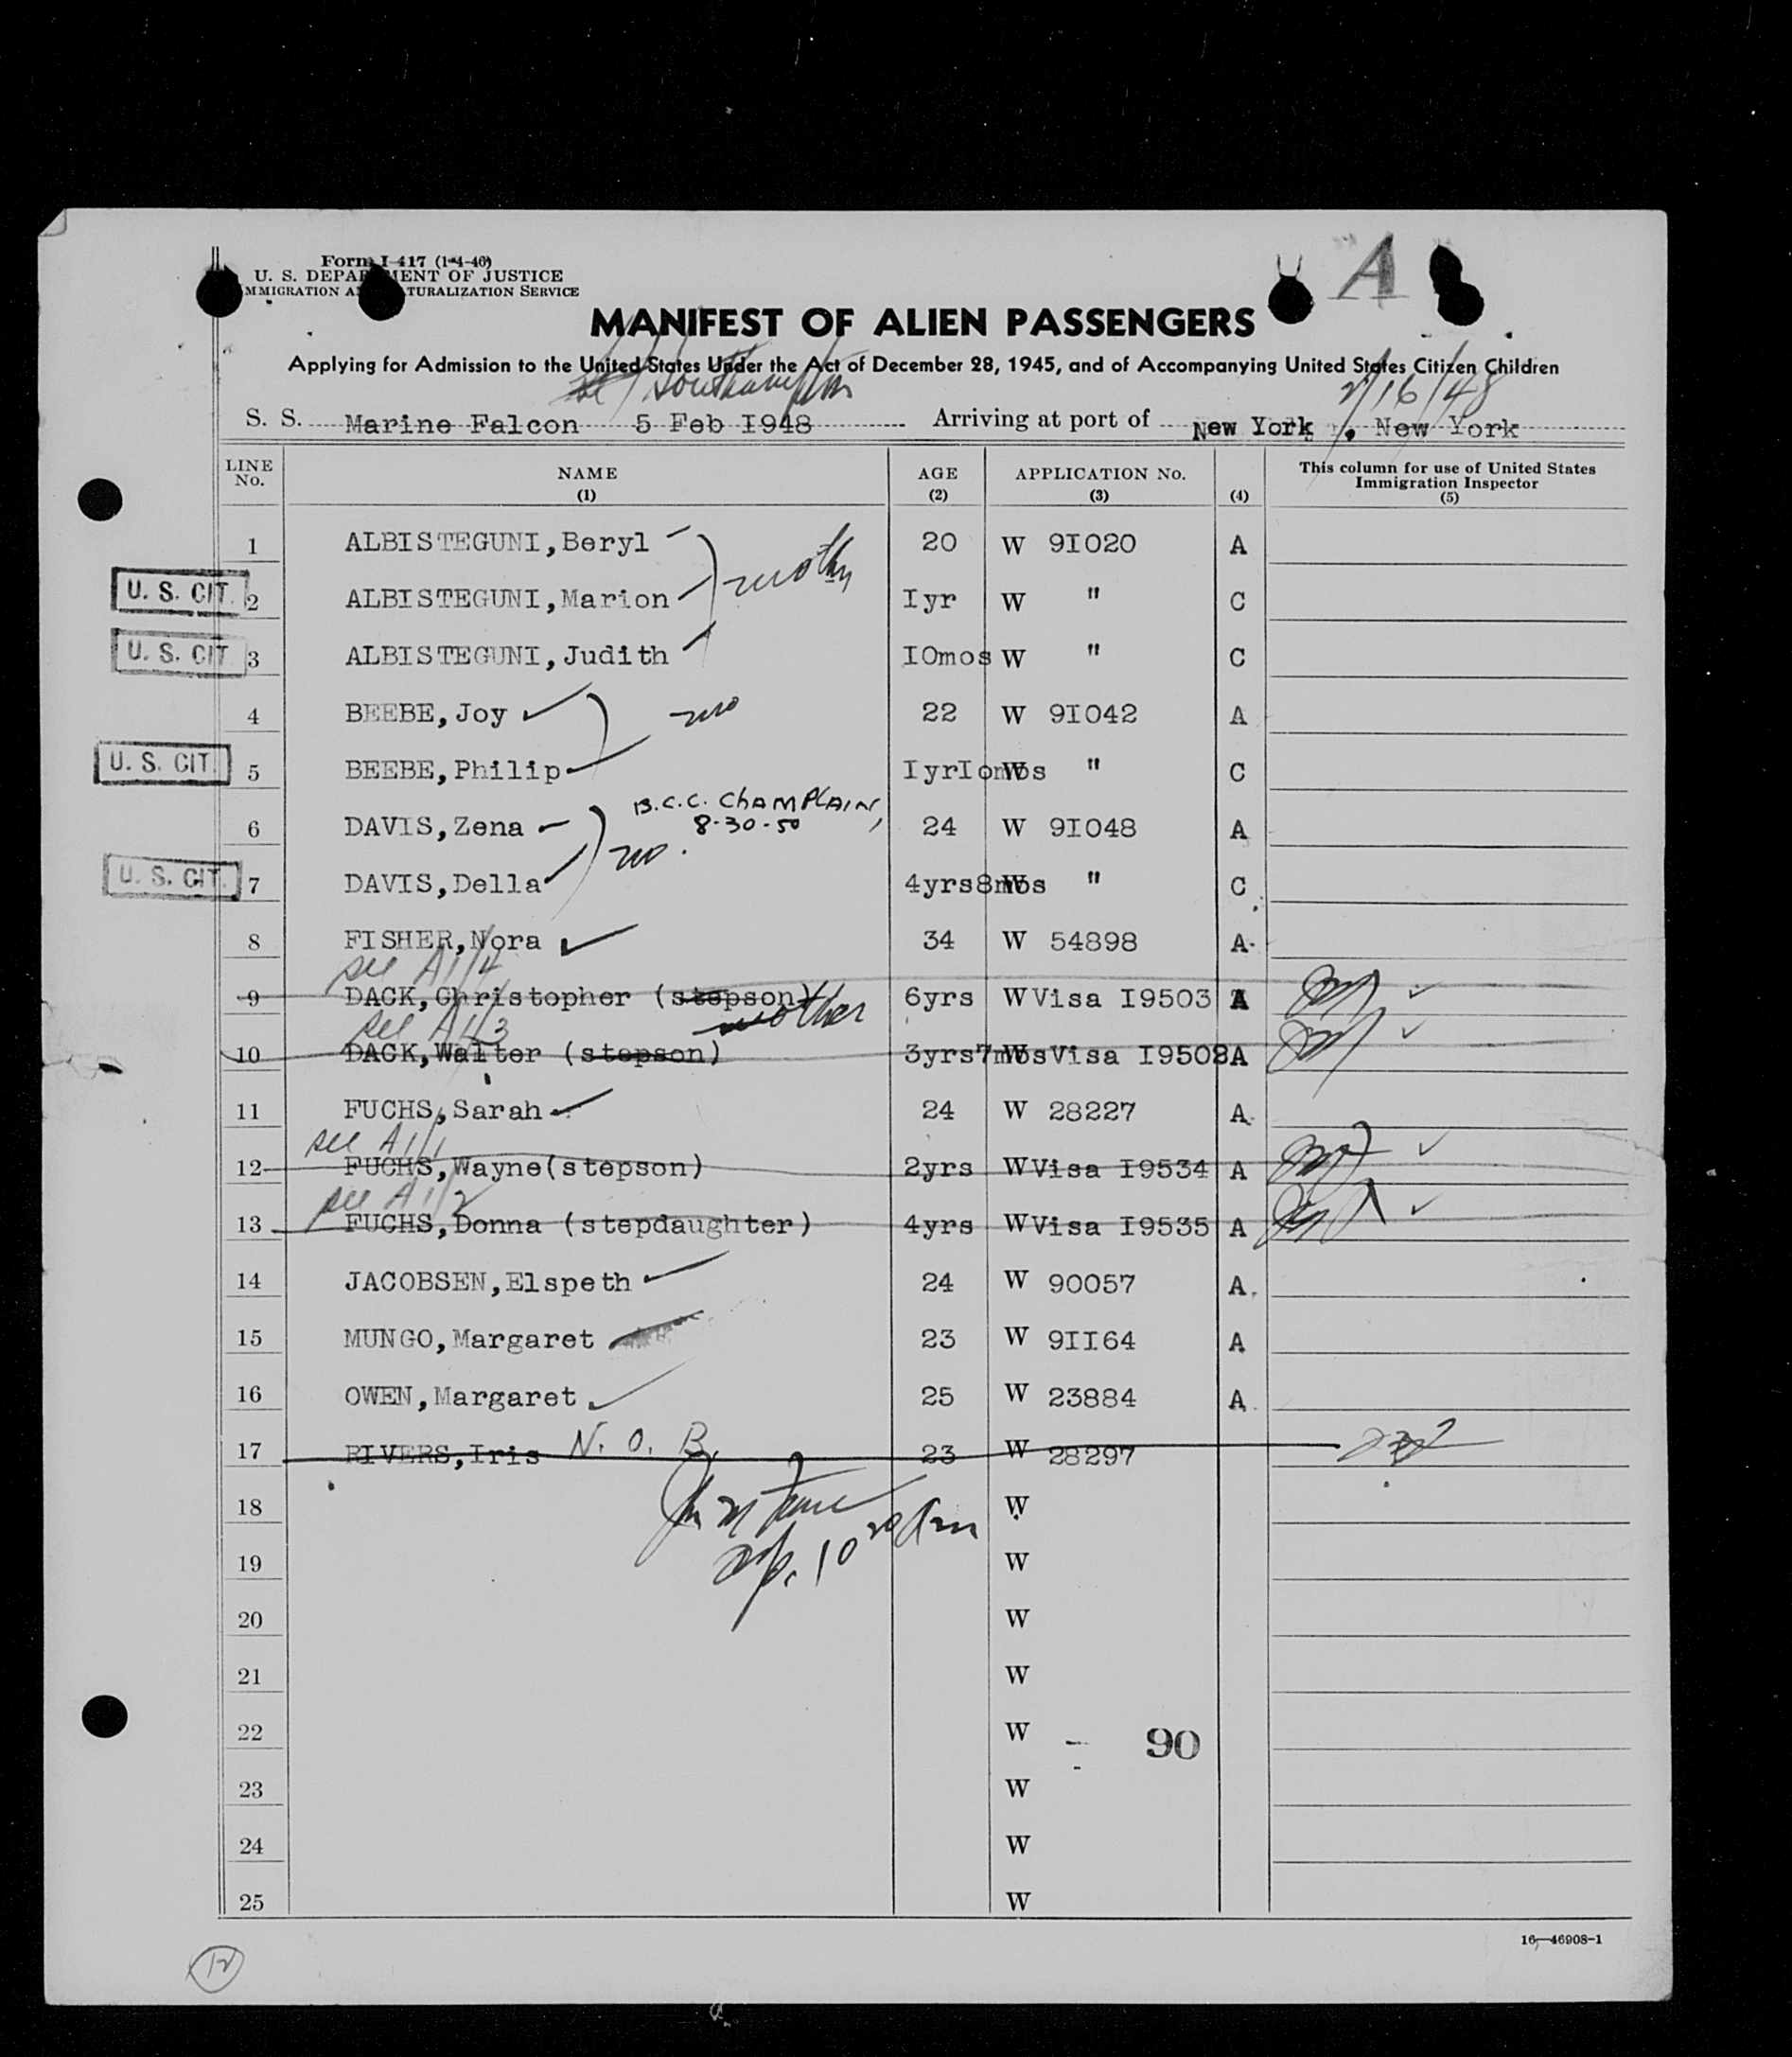 Form I-417 (1-4-46)
U. S. DEPARTMENT OF JUSTICE
IMMIGRATION AND NATURALIZATION SERVICE
A
MANIFEST OF ALIEN PASSENGERS
Applying for Admission to the United States Under the Act of December 28, 1945, and of Accompanying United States Citizen Children
Southampton 2/16/48
S. S. Marine Falcon 5 Feb I948 Arriving at port of New York, New York
LINE No. NAME (1) AGE (2) APPLICATION No. (3) (4) This column for use of United States Immigration Inspector (5)
1 ALBISTEGUNI,Beryl 20 W 9I020 A
mother
U. S. CIT. 2 ALBISTEGUNI,Marion Iyr W " C
U. S. CIT. 3 ALBISTEGUNI,Judith IOmos W " C
4 BEEBE,Joy mo 22 W 9I042 A
U. S. CIT. 5 BEEBE,Philip IyrIomos W " C
B.C.C. CHAMPLAIN,
8-30-50
6 DAVIS,Zena 24 W 9I048 A
mo.
U. S. CIT. 7 DAVIS,Della 4yrs8mos W " C
8 FISHER,Nora 34 W 54898 A
see A1/4
9 DACK,Christopher (stepson) 6yrs W Visa I9503 A
see A1/3 mother
10 DACK,Walter (stepson) 3yrs7mos W Visa I9502 A
11 FUCHS,Sarah 24 W 28227 A
see A1/1
12 FUCHS,Wayne(stepson) 2yrs W Visa I9534 A
see A1/2
13 FUCHS,Donna (stepdaughter) 4yrs W Visa I9535 A
14 JACOBSEN,Elspeth 24 W 90057 A
15 MUNGO,Margaret 23 W 9II64 A
16 OWEN,Margaret 25 W 23884 A
17 RIVERS,Iris N. O. B. 23 W 28297
18 W
19 W
20 W
21 W
22 W 90
23 W
24 W
25 W
16-46908-1
12